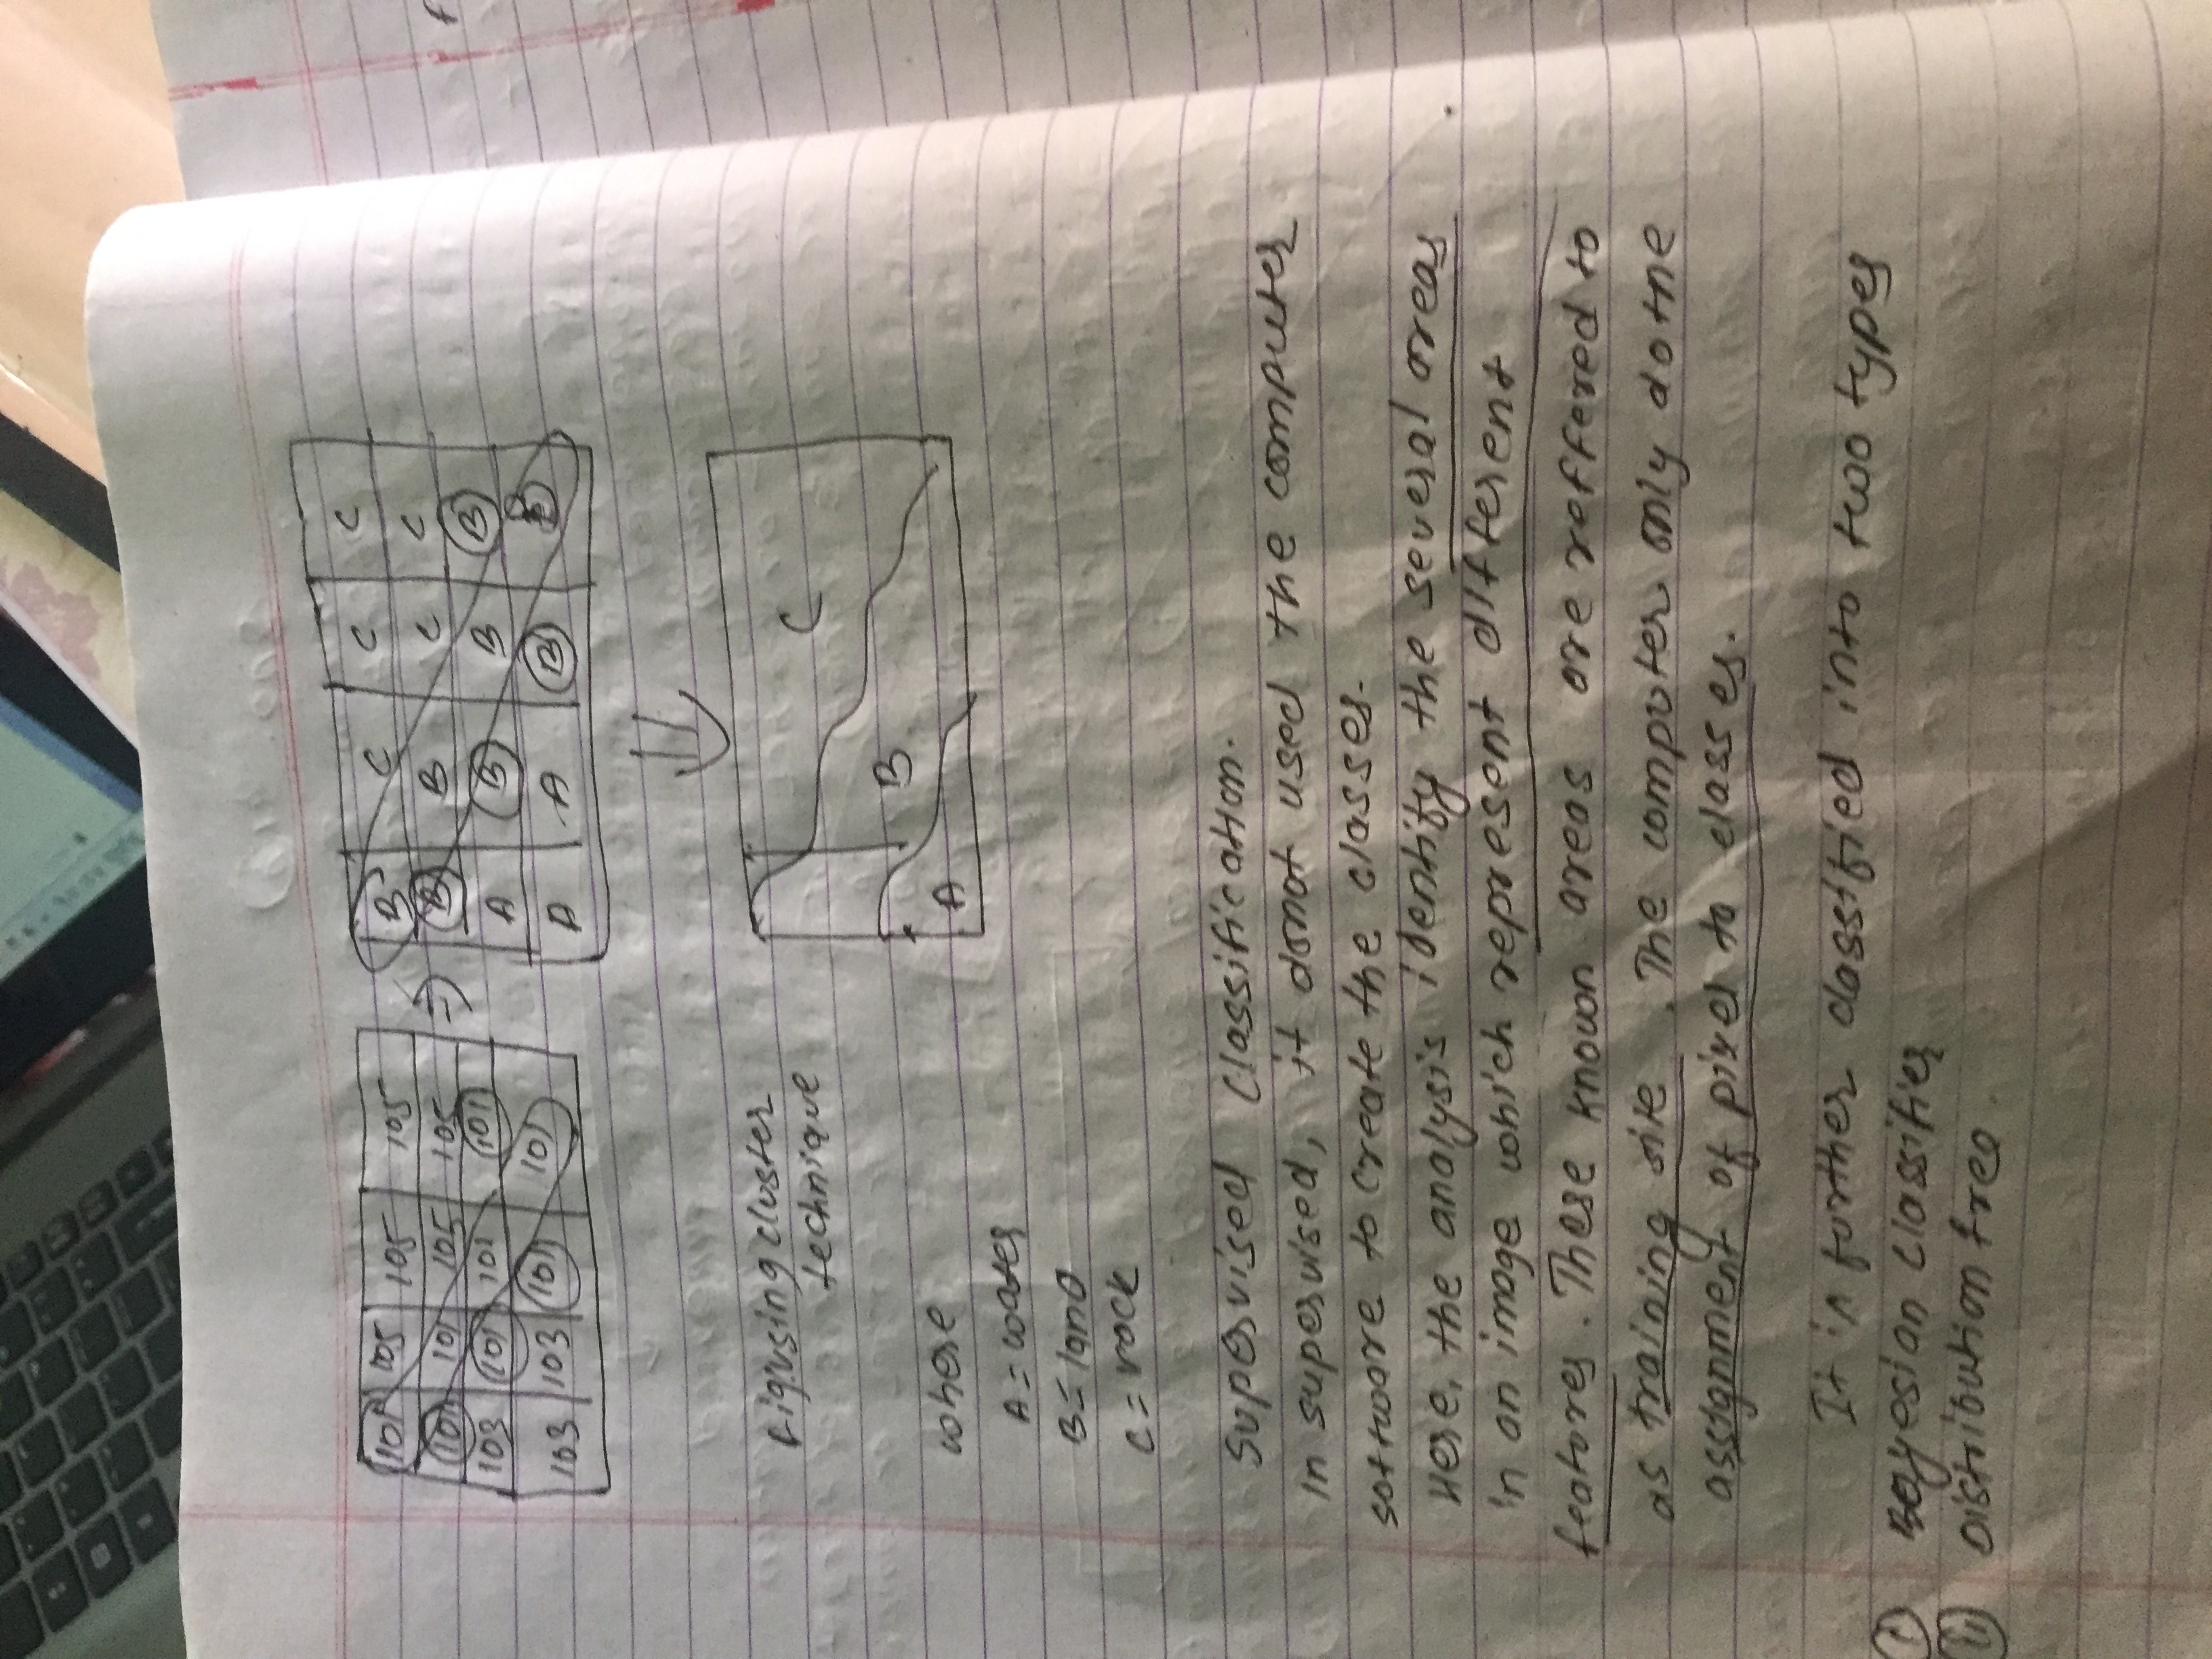 101 105 105 105
101 101 105 105
103 101 101 101
103 103 101 101
⇒
B C C C
B B C C
A B B B
A A B B
Fig:using cluster
technique
C
B
A
where
A = water
B = land
C = rock
Supervised Classification.
In supervised, it donot used the computer
software to create the classes.
Here, the analysis identify the several areas
in an image which represent different
features. These known areas are reffered to
as training site. The computer only do the
assignment of pixel to classes.
It is further classified into two types
(i) Bayesian Classifier
(ii) Distribution free.